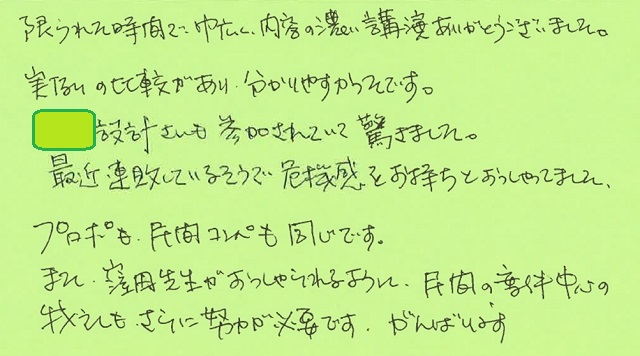 限られた時間で、巾広く、内容の濃い講演ありがとうございました。
実例の比較があり、分かりやすかったです。
設計さんも参加されていて驚きました。
最近連敗しているそうで危機感をお持ちとおっしゃってました、
プロポも、民間コンペも同じです。
また、窪田先生がおっしゃられるように、民間の案件中心の
我々も さらに努力が必要です。がんばります